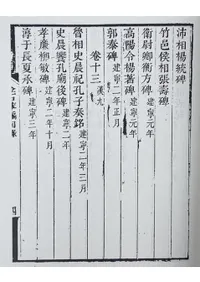 沛相楊統碑
竹邑侯相張壽碑
衛尉卿衡方碑 建寧元年
高陽令楊著碑 建寧元年
郭泰碑 建寧二年正月
卷十三 漢九
魯相史晨祀孔子奏銘 建寧二年三月
史晨饗孔廟後碑 建寧二年
孝廉柳敏碑 建寧二年十月
淳于長夏承碑 建寧三年
四